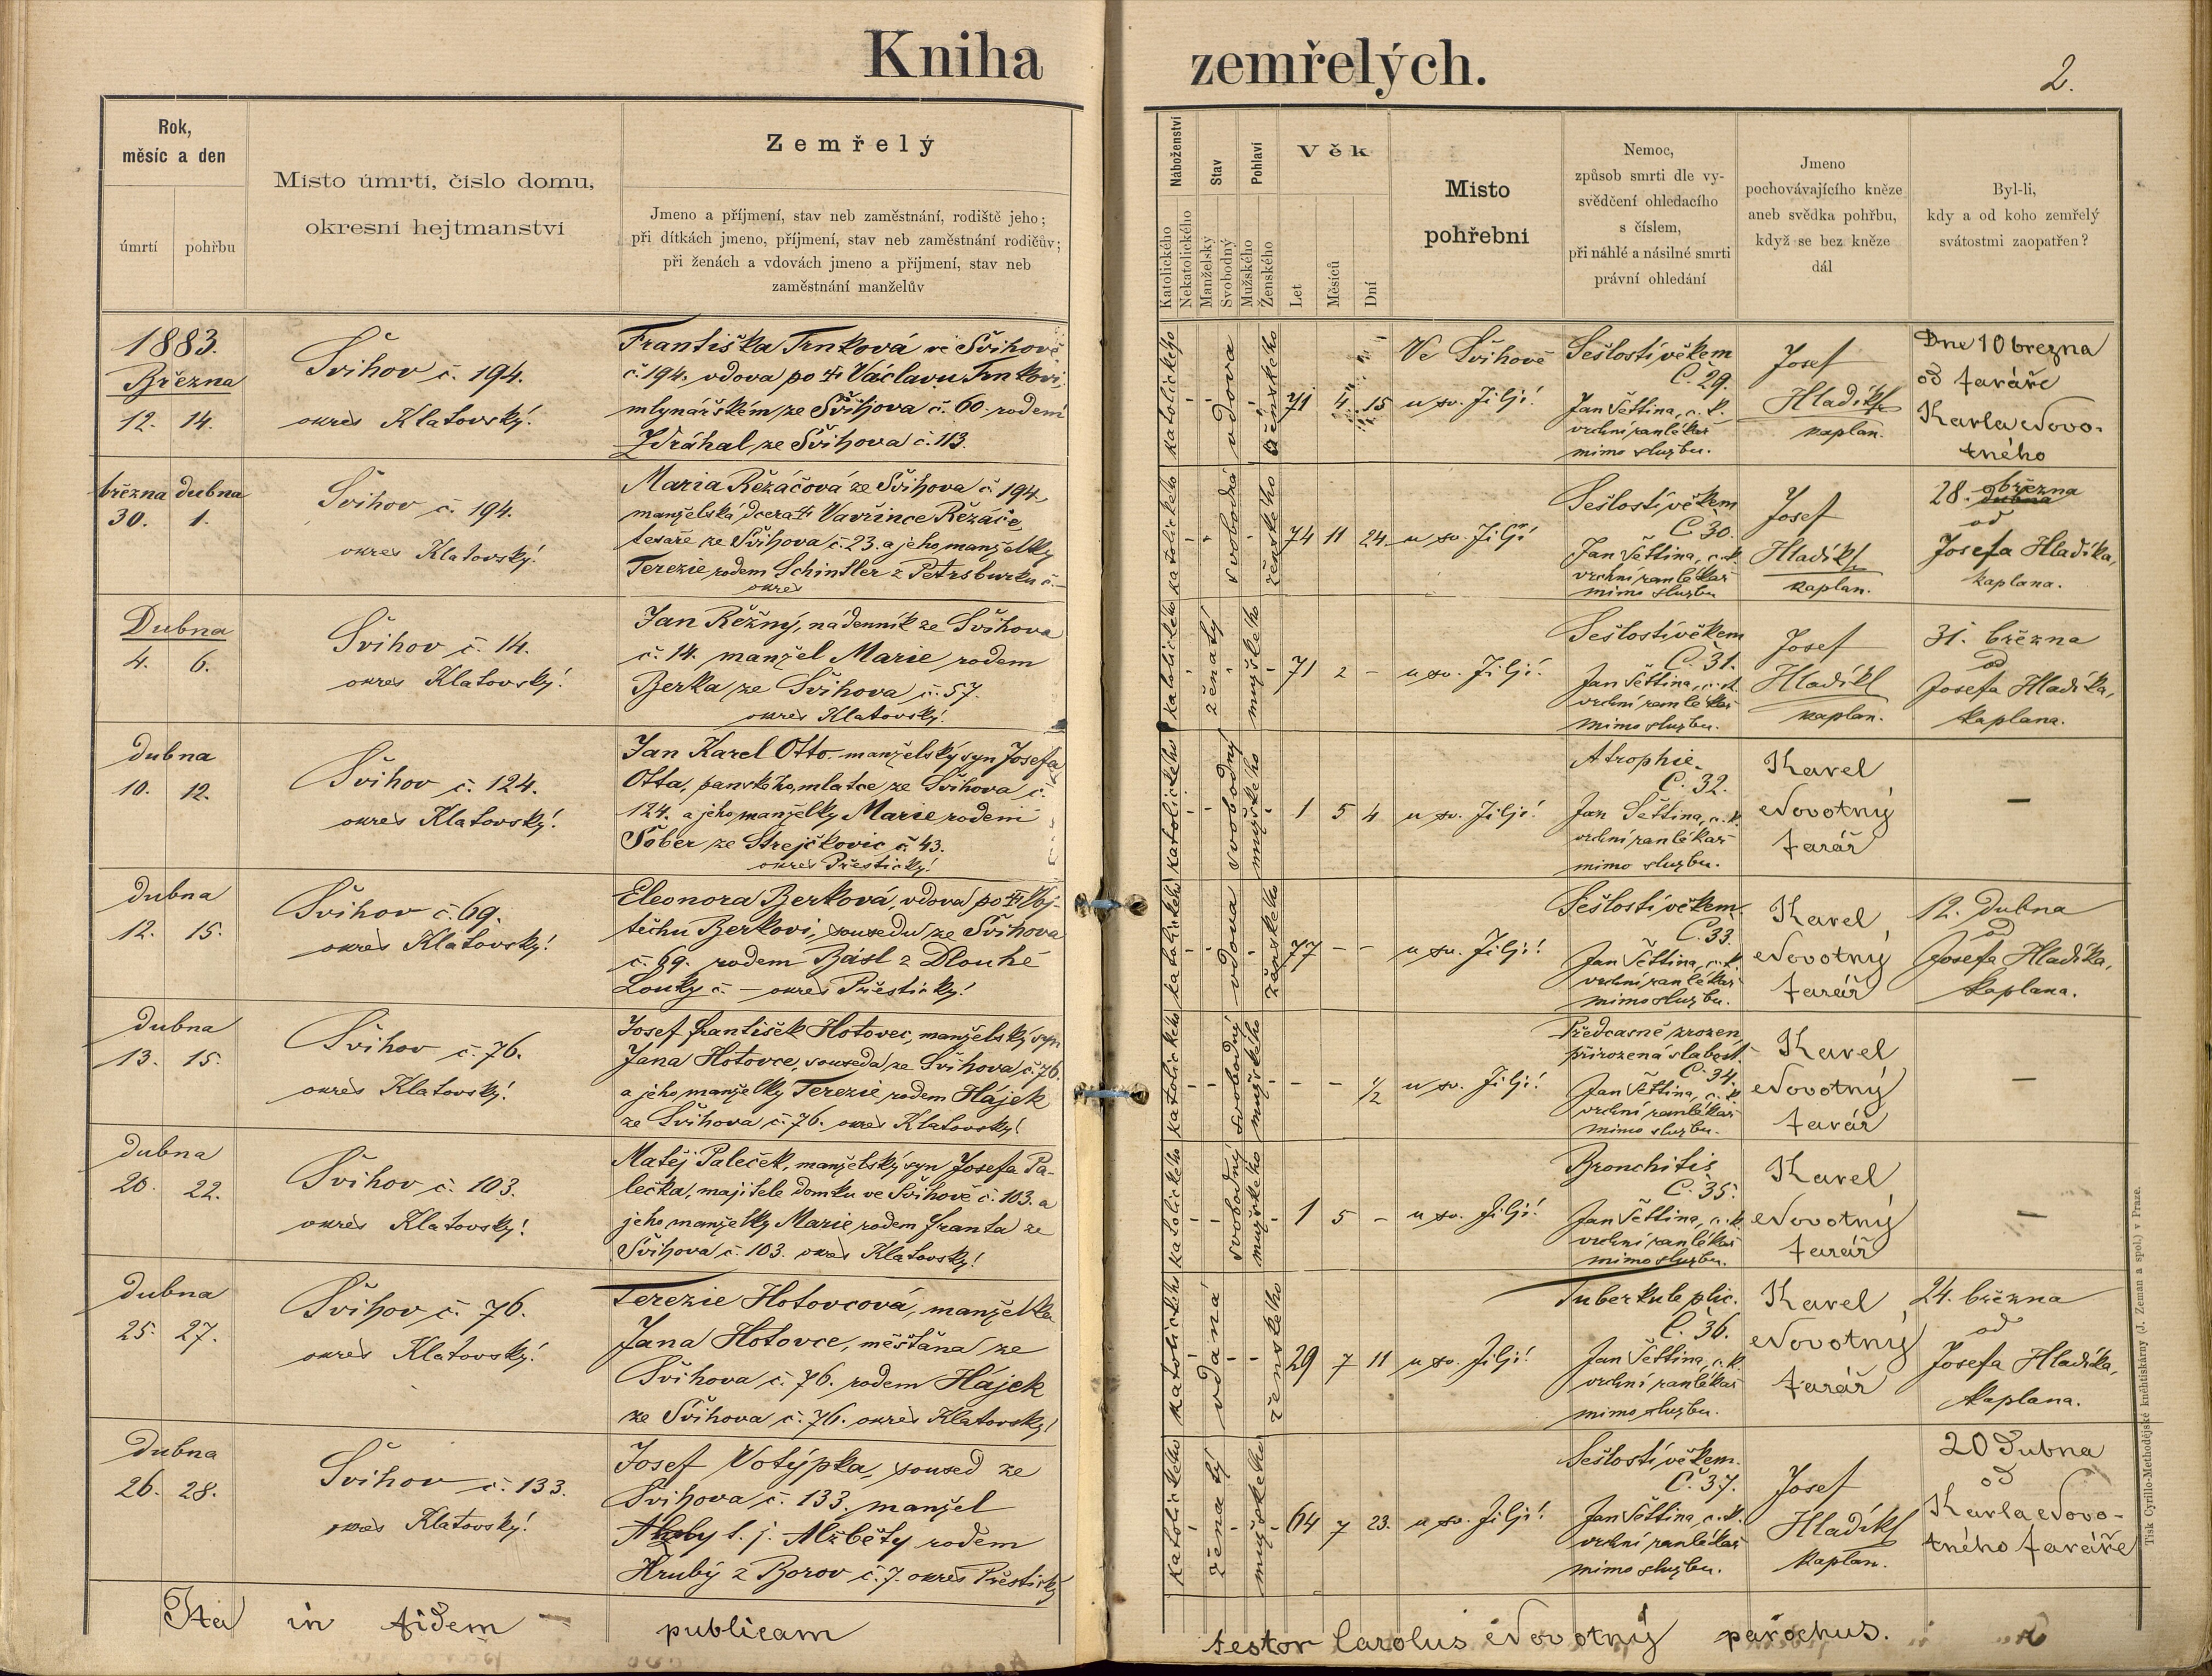 Kniha zemřelých.
2.
Rok,
měsíc a den
úmrtí pohřbu
Místo úmrtí, číslo domu,
okresní hejtmanství
Zemřelý
Jmeno a příjmení, stav neb zaměstnání, rodiště jeho;
při dítkách jmeno, příjmení, stav neb zaměstnání rodičův;
při ženách a vdovách jmeno a příjmení, stav neb
zaměstnání manželův
Náboženství
Katolického
Nekatolického
Stav
Manželský
Svobodný
Pohlaví
Mužského
Ženského
Věk
Let
Měsíců
Dní
Místo
pohřební
Nemoc,
způsob smrti dle vy-
svědčení ohledacího
s číslem,
při náhlé a násilné smrti
právní ohledání
Jmeno
pochovávajícího kněze
aneb svědka pohřbu,
když se bez kněze
dál
Byl-li,
kdy a od koho zemřelý
svátostmi zaopatřen?
1883.
Března
12. 14.
Švihov č. 194.
okres Klatovský.
Františka Trnková ve Švihově
č. 194, vdova po † Václavu Trnkovi,
mlynářském ze Švihova č. 60. rodem
Zdráhal ze Švihova č. 113.
katolického
- -
vdova
-
ženského
71 4 15
Ve Švihově
u sv. Jiljí.
Sešlostí věkem
Č. 29.
Jan Šettina, c. k.
vrchní ranlékař
mimo službu.
Josef
Hladík
kaplan.
Dne 10 března
od faráře
Karla Novo-
tného
března dubna
30. 1.
Švihov č. 194.
okres Klatovský.
Maria Řezáčová ze Švihova č. 194,
manželská dcera † Vavřince Řezáče,
tesaře ze Švihova č. 23. a jeho manželky
Terezie rodem Schintler z Petrsburku č. —
okres
katolického
- -
svobodná
-
ženského
74 11 24
u sv. Jiljí
Sešlostí věkem
Č. 30.
Jan Šettina, c. k.
vrchní ranlékař
mimo službu
Josef
Hladík
kaplan.
28. března
dubna
od
Josefa Hladíka,
kaplana.
Dubna
4. 6.
Švihov č. 14.
okres Klatovský.
Jan Řežný, nádenník ze Švihova
č. 14. manžel Marie rodem
Berka ze Švihova č. 57.
okres Klatovský.
katolického
-
ženatý
- -
mužského
71 2 -
u sv. Jiljí.
Sešlostí věkem
Č. 31.
Jan Šettina, c. k.
vrchní ranlékař
mimo službu.
Josef
Hladík
kaplan.
31. března
od
Josefa Hladíka,
kaplana.
dubna
10. 12.
Švihov č. 124.
okres Klatovský.
Jan Karel Otto, manželský syn Josefa
Otta, panského mlatce ze Švihova č.
124. a jeho manželky Marie rodem
Šober ze Strejčkovic č. 43.
okres Přestický.
katolického
- -
svobodný
mužského
-
1 5 4
u sv. Jiljí.
Atrophie.
Č. 32.
Jan Šettina, c. k.
vrchní ranlékař
mimo službu.
Karel
Novotný
farář
—
dubna
12. 15.
Švihov č. 69.
okres Klatovský.
Eleonora Berková, vdova po † Voj-
těchu Berkovi, sousedu ze Švihova
č. 69. rodem Bášl z Dlouhé
Louky č. — okres Přestický.
katolického
- -
vdova
-
ženského
77 - -
u sv. Jiljí.
Sešlostí věkem.
Č. 33.
Jan Šettina, c. k.
vrchní ranlékař
mimo službu.
Karel
Novotný
farář
12. dubna
od
Josefa Hladíka,
kaplana.
dubna
13. 15.
Švihov č. 76.
okres Klatovský.
Josef František Hotovec, manželský syn
Jana Hotovce, souseda ze Švihova č. 76.
a jeho manželky Terezie rodem Hájek
ze Švihova č. 76. okres Klatovský.
katolického
- -
svobodný
mužského
-
- - 1/2
u sv. Jiljí.
Předčasně zrozen,
přirozená slabost.
Č. 34.
Jan Šettina, c. k.
vrchní ranlékař
mimo službu.
Karel
Novotný
farář
—
dubna
20. 22.
Švihov č. 103.
okres Klatovský.
Matěj Paleček, manželský syn Josefa Pa-
lečka, majitele domku ve Švihově č. 103. a
jeho manželky Marie rodem Franta ze
Švihova č. 103. okres Klatovský.
katolického
- -
svobodný
mužského
-
1 5 -
u sv. Jiljí.
Bronchitis
Č. 35.
Jan Šettina, c. k.
vrchní ranlékař
mimo službu.
Karel
Novotný
farář
—
dubna
25. 27.
Švihov č. 76.
okres Klatovský.
Terezie Hotovcová, manželka
Jana Hotovce, měšťana ze
Švihova č. 76. rodem Hájek
ze Švihova č. 76. okres Klatovský.
katolického
-
vdaná
- -
ženského
29 7 11
u sv. Jiljí.
Tuberkule plic.
Č. 36.
Jan Šettina, c. k.
vrchní ranlékař
mimo službu.
Karel
Novotný
farář
24. března
od
Josefa Hladíka,
kaplana.
Dubna
26. 28.
Švihov č. 133.
okres Klatovský.
Josef Votýpka, soused ze
Švihova č. 133. manžel
t. j. Alžběty rodem
Hrubý z Borov č. 7. okres Přestický
katolického
-
ženatý
- -
mužského
64 7 23.
u sv. Jiljí.
Sešlostí věkem.
Č. 37.
Jan Šettina, c. k.
vrchní ranlékař
mimo službu.
Josef
Hladík
kaplan.
20 Dubna
od
Karla Novo-
tného faráře
Ita in fidem publicam testor Carolus Novotný parochus.
Tisk Cyrillo-Methodějské knihtiskárny (J. Zeman a spol.) v Praze.